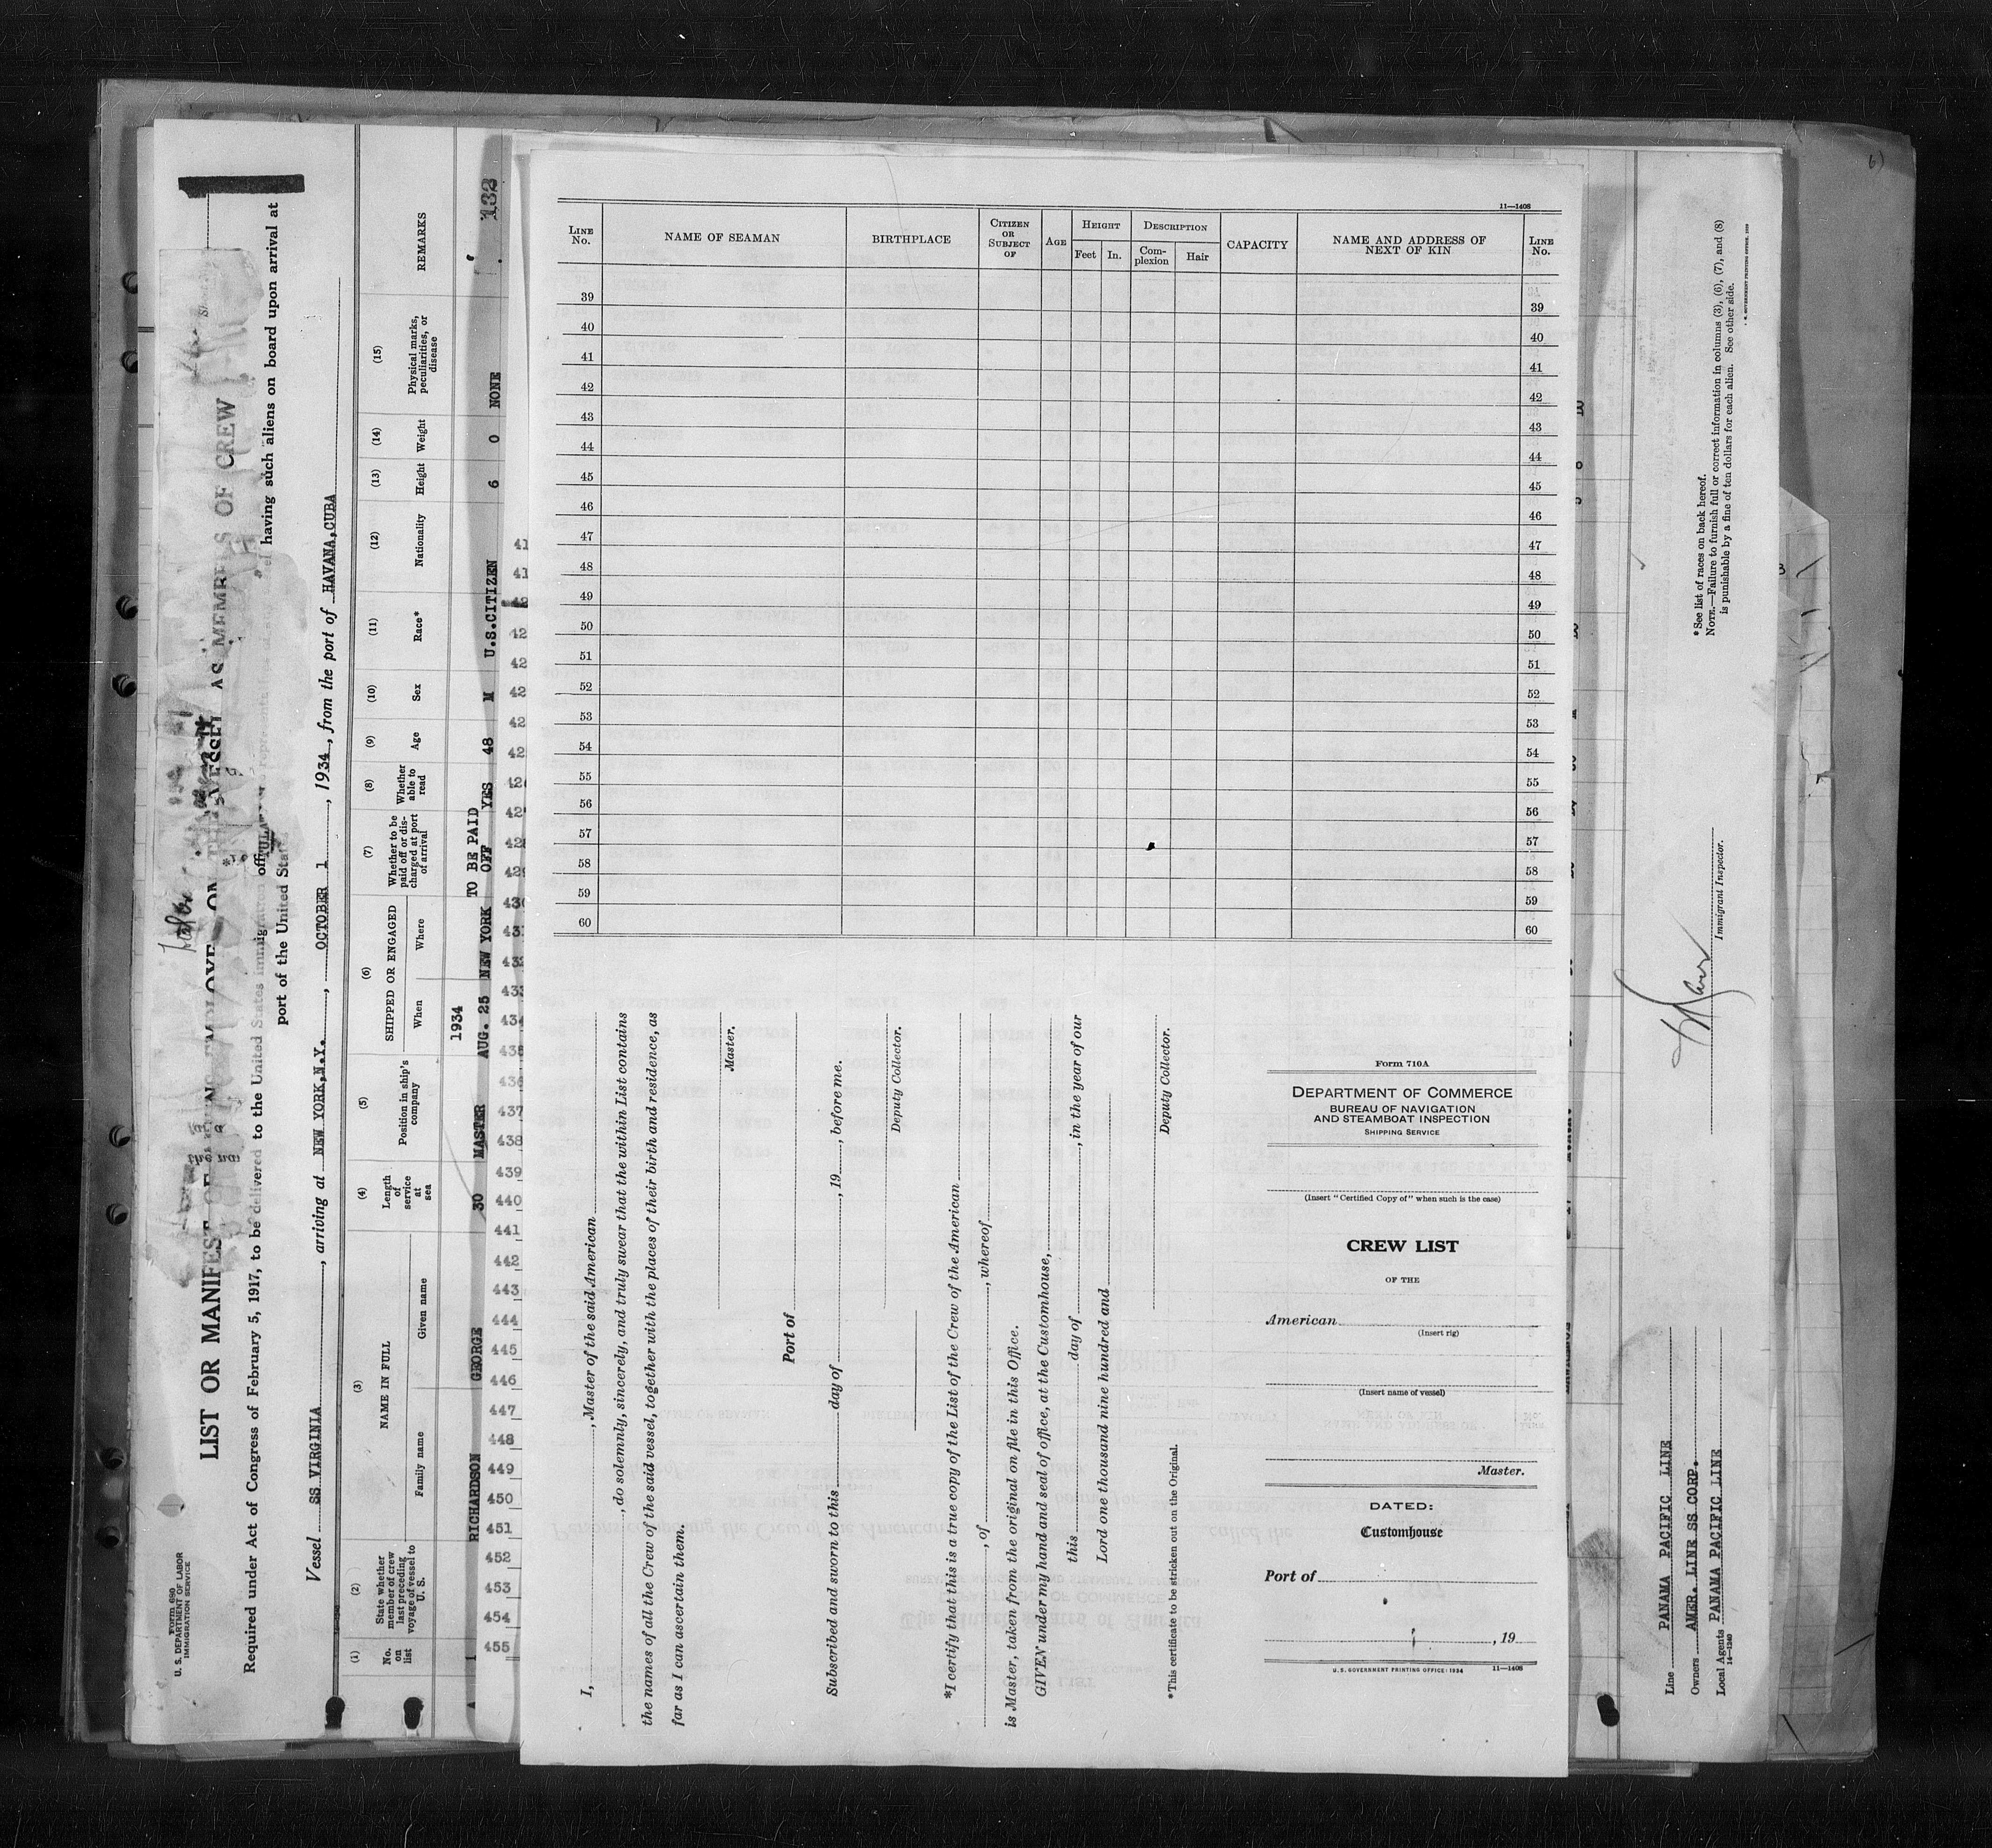 Form 680
U. S. DEPARTMENT OF LABOR
IMMIGRATION SERVICE
LIST OR MANIFEST OF VESSEL AS MEMBERS OF CREW
Required under Act of Congress of February 5, 1917, to be delivered to the United States immigration having such aliens on board upon arrival at
port of the United
Vessel SS VIRGINIA, arriving at NEW YORK,N.Y., OCTOBER 1, 1934, from the port of HAVANA,CUBA
(1) No. on list
(2) State whether member of crew last preceding voyage of vessel to U. S.
(3) NAME IN FULL Family name Given name
(4) Length of service at sea
(5) Position in ship's company
(6) SHIPPED OR ENGAGED When Where
(7) Whether to be paid off or discharged at port of arrival
(8) Whether able to read
(9) Age
(10) Sex
(11) Race*
(12) Nationality
(13) Height
(14) Weight
(15) Physical marks, peculiarities, or disease
REMARKS
1934 TO BE PAID
1 RICHARDSON GEORGE 30 MASTER AUG. 25 NEW YORK OFF YES 48 M U.S.CITIZEN 6 0 NONE
132
429
430
431
432
433
434
435
436
437
438
439
440
441
442
443
444
445
446
447
448
449
450
451
452
453
454
455
11—1408
LINE No. NAME OF SEAMAN BIRTHPLACE CITIZEN OR SUBJECT OF AGE HEIGHT Feet In. DESCRIPTION Complexion Hair CAPACITY NAME AND ADDRESS OF NEXT OF KIN LINE No.
39 39
40 40
41 41
42 42
43 43
44 44
45 45
46 46
47 47
48 48
49 49
50 50
51 51
52 52
53 53
54 54
55 55
56 56
57 57
58 58
59 59
60 60
I, , Master of the said American
, do solemnly, sincerely, and truly swear that the within List contains
the names of all the Crew of the said vessel, together with the places of their birth and residence, as
far as I can ascertain them.
Master.
Port of
Subscribed and sworn to this day of , 19 , before me.
Deputy Collector.
*I certify that this is a true copy of the List of the Crew of the American
, of , whereof
is Master, taken from the original on file in this Office.
GIVEN under my hand and seal of office, at the Customhouse,
this day of , in the year of our
Lord one thousand nine hundred and
Deputy Collector.
*This certificate to be stricken out on the Original.
Form 710A
DEPARTMENT OF COMMERCE
BUREAU OF NAVIGATION
AND STEAMBOAT INSPECTION
SHIPPING SERVICE
(Insert "Certified Copy of" when such is the case)
CREW LIST
OF THE
American
(Insert rig)
(Insert name of vessel)
Master.
DATED:
Customhouse
Port of
, 19
U. S. GOVERNMENT PRINTING OFFICE: 1934 11—1408
Line PANAMA PACIFIC LINE
Owners AMER. LINE SS CORP.
Local Agents PANAMA PACIFIC LINE
14—1240
Immigrant Inspector.
*See list of races on back hereof.
NOTE.—Failure to furnish full or correct information in columns (3), (6), (7), and (8)
is punishable by a fine of ten dollars for each alien. See other side.